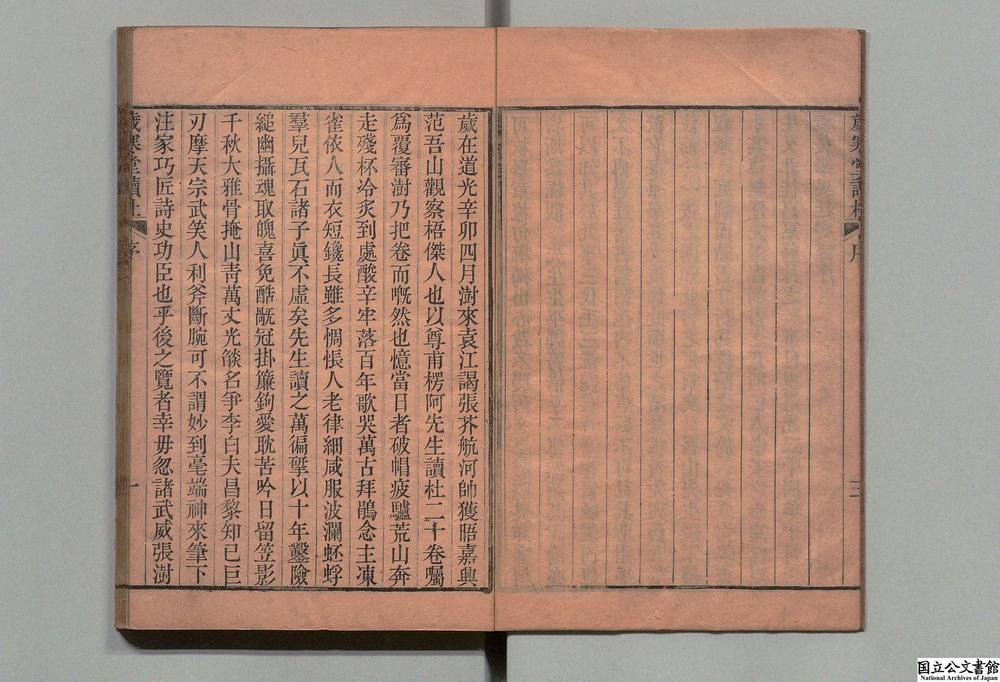 歲寒堂讀杜
序
三
歲在道光辛卯四月澍來袁江謁張芥航河帥獲晤嘉興
范吾山觀察梧傑人也以尊甫楞阿先生讀杜二十卷囑
爲覆審澍乃把卷而嘅然也憶當日者破帽疲驢荒山奔
走殘杯冷炙到處酸辛牢落百年歌哭萬古拜鵑念主凍
雀依人而衣短鑱長雖多惆悵人老律細咸服波瀾蚍蜉
羣兒瓦石諸子眞不虛矣先生讀之萬徧揅以十年鑿險
縋幽攝魂取魄喜免酷厭冠掛簾鉤愛耽苦吟日留笠影
千秋大雅骨掩山靑萬丈光燄名爭李白夫昌黎知已巨
刃摩天宗武笑人利斧斷腕可不謂妙到毫端神來筆下
注家巧匠詩史功臣也乎後之覽者幸毋忽諸武威張澍
歲寒堂讀杜
序
一
国立公文書館
National Archives of Japan